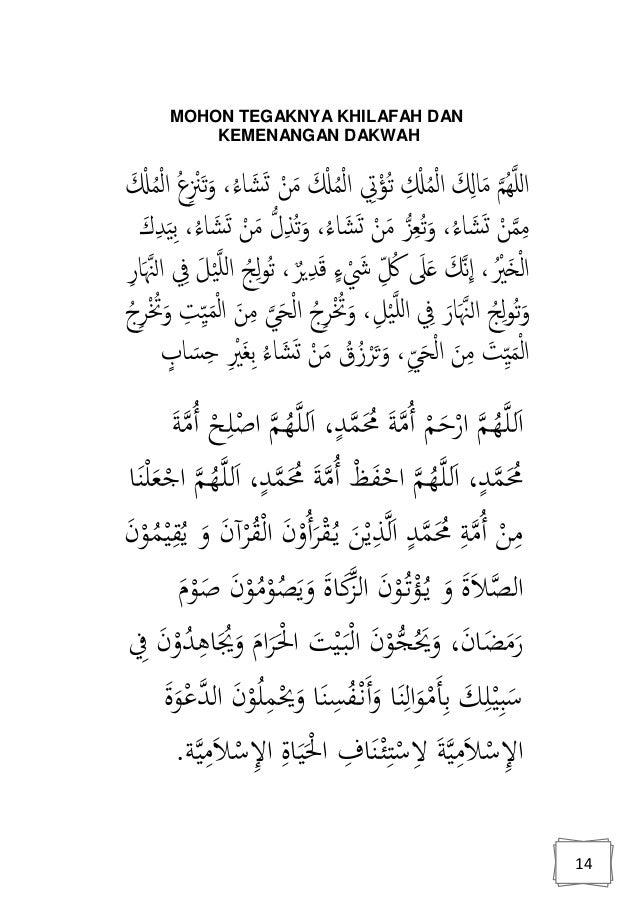 MOHON TEGAKNYA KHILAFAH DAN
KEMENANGAN DAKWAH
اللَّهُمَّ مَالِكَ الْمُلْكِ تُؤْتِي الْمُلْكَ مَنْ تَشَاءُ، وَتَنْزِعُ الْمُلْكَ
مِمَّنْ تَشَاءُ، وَتُعِزُّ مَنْ تَشَاءُ، وَتُذِلُّ مَنْ تَشَاءُ، بِيَدِكَ
الْخَيْرُ، إِنَّكَ عَلَى كُلِّ شَيْءٍ قَدِيرٌ، تُولِجُ اللَّيْلَ فِي النَّهَارِ
وَتُولِجُ النَّهَارَ فِي اللَّيْلِ، وَتُخْرِجُ الْحَيَّ مِنَ الْمَيِّتِ وَتُخْرِجُ
الْمَيِّتَ مِنَ الْحَيِّ، وَتَرْزُقُ مَنْ تَشَاءُ بِغَيْرِ حِسَابٍ
اَللَّهُمَّ ارْحَمْ أُمَّةَ مُحَمَّدٍ، اَللَّهُمَّ اصْلِحْ أُمَّةَ
مُحَمَّدٍ، اَللَّهُمَّ احْفَظْ أُمَّةَ مُحَمَّدٍ، اَللَّهُمَّ اجْعَلْنَا
مِنْ أُمَّةِ مُحَمَّدٍ اَلَّذِيْنَ يُقْرَأُوْنَ الْقُرْآنَ وَ يُقِيْمُوْنَ
الصَّلاَةَ وَ يُؤْتُوْنَ الزَّكَاةَ وَيَصُوْمُوْنَ صَوْمَ
رَمَضَانَ، وَيَحُجُّوْنَ الْبَيْتَ الْحَرَامَ وَيُجَاهِدُوْنَ فِي
سَبِيْلِكَ بِأَمْوَالِنَا وَأَنْفُسِنَا وَيَحْمِلُوْنَ الدَّعْوَةَ
الإِسْلاَمِيَّةَ لِاسْتِئْنَافِ الْحَيَاةِ الإِسْلاَمِيَّة.
14